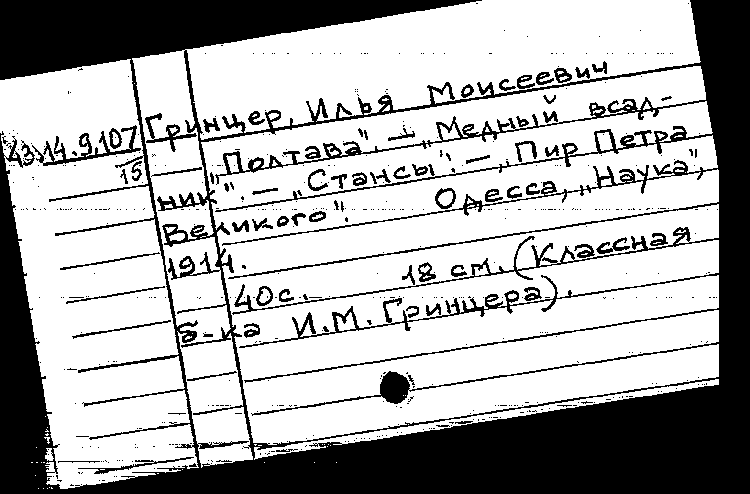 Гринцер, Илья Моисеевич
43.14.9.107
15
„Полтава". — „Медный всад-
ник". — „Стансы". — „Пир Петра
Великого".   Одесса, „Наука",
1914.
40 с.   18 см. (Классная
б-ка И.М. Гринцера).